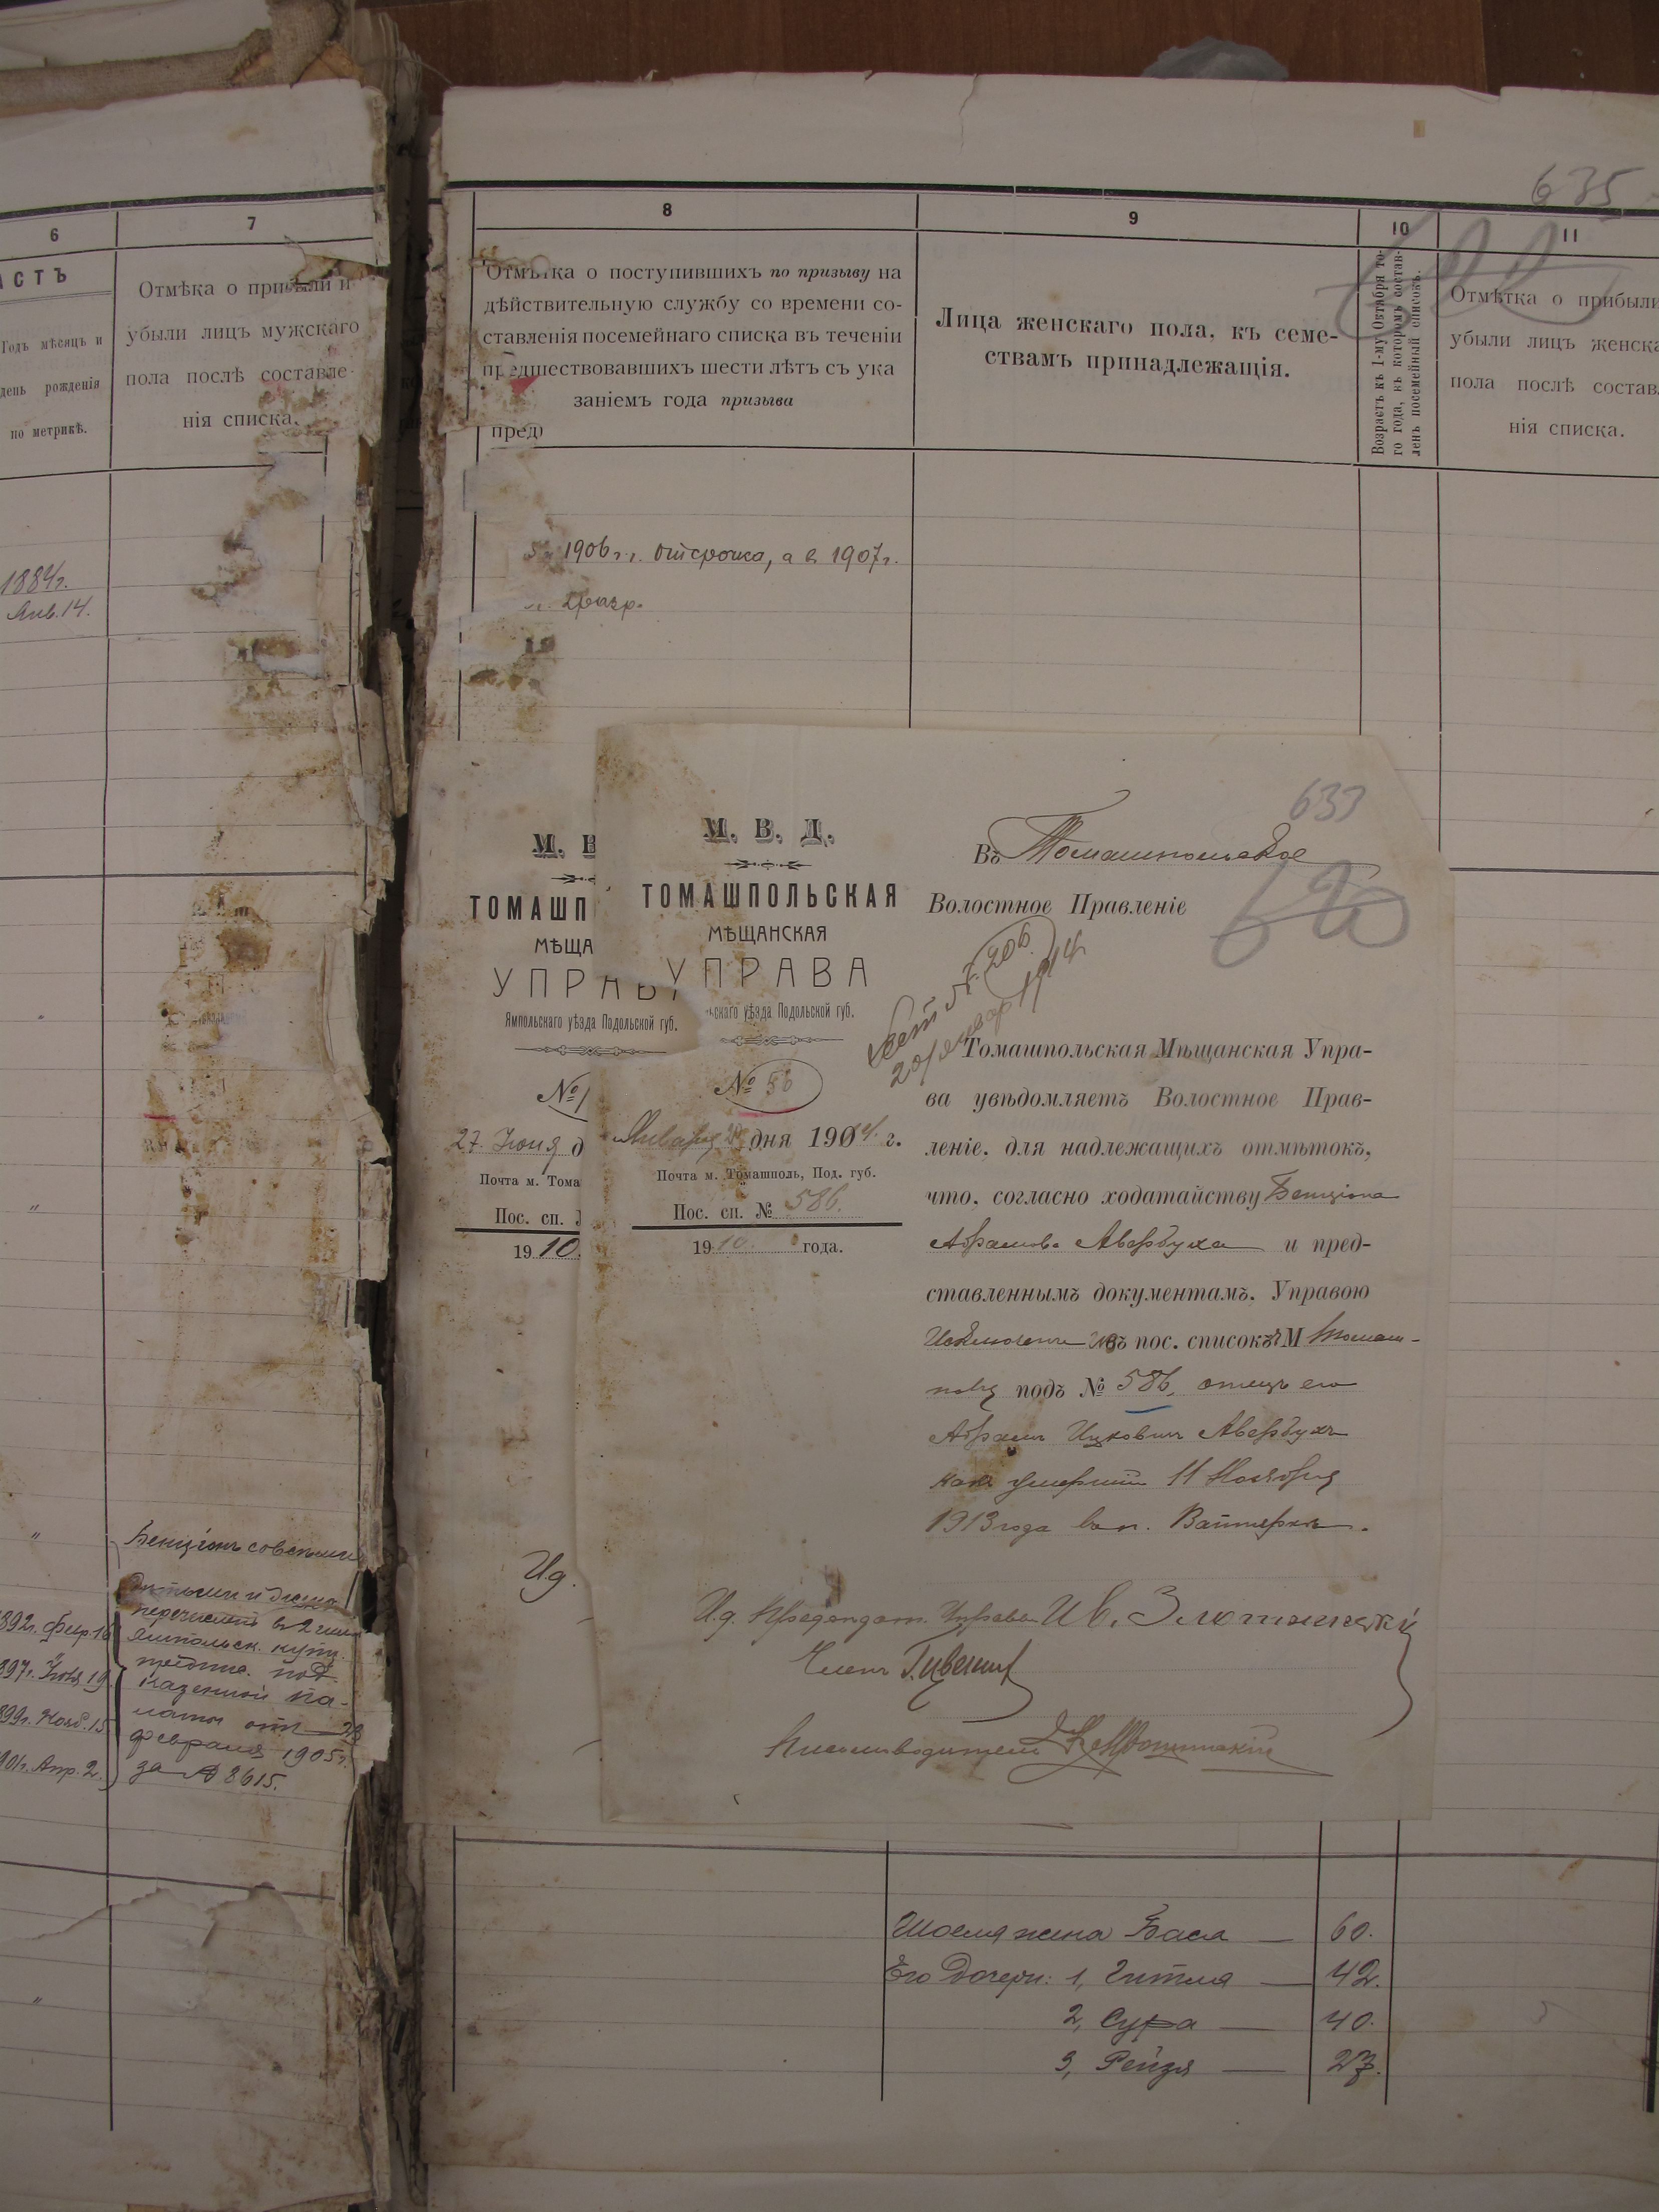 635
6
7
АСТЪ
Годъ мѣсяцъ и
день рожденія
по метрикѣ.
Отмѣка о прибыли и
убыли лицъ мужскаго
пола послѣ составле-
нія списка.
1884г.
Янв. 14.
Бенціонъ совсѣми
892г. Февр. 16
897г. Іюня 19.
899г. Нояб. 15
901г. Апр. 2.
перечисленъ въ 2 гил.
Ямпольск. купц.
казенной па-
латы отъ 28
февраля 1905г.
за № 8615.
8
9
10
11
Отмѣтка о поступившихъ по призыву на
дѣйствительную службу со времени со-
ставленія посемейнаго списка въ теченіи
предшествовавшихъ шести лѣтъ съ ука
заніемъ года призыва
пред
Лица женскаго пола, къ семе-
ствамъ принадлежащія.
Возрастъ къ 1-му Октября то-
го года, къ которомъ состав-
ленъ посемейный списокъ.
Отмѣтка о прибыли
убыли лицъ женска
пола послѣ состав
нія списка.
1906 г. отсрочка, а в 1907г.
2 разр.
М. В
ТОМАШП
МѢЩА
УПРАВ
Ямпольскаго уѣзда Подольской губ.
№ 1
27 Іюня д
Почта м. Тома
Пос. сп.
1910.
И.д.
М. В. Д.
ТОМАШПОЛЬСКАЯ
МѢЩАНСКАЯ
УПРАВА
скаго уѣзда Подольской губ.
№ 56
Января 20 дня 1904. г.
Почта м. Томашполь, Под. губ.
Пос. сп. № 586.
1910. года.
633
Въ Томашпольское
Волостное Правленіе
620
20 январ 1914
Томашпольская Мѣщанская Упра-
ва увѣдомляетъ Волостное Прав-
леніе, для надлежащихъ отмѣтокъ,
что, согласно ходатайству Бенціона
Абрамова Авербуха и пред-
ставленнымъ документамъ. Управою
Исключенъ изъ пос. списокъ М Томаш-
поля подъ № 586, отецъ его
Абрамъ Ицковичъ Авербухъ
какъ умершій 11 Ноября
1913 года
И.д. Предсѣдат. Управы Ив.
Членъ
Письмоводитель
жена Бася — 60.
Его дочери: 1, Гитля — 42.
2, Сура — 40.
3, Рейзя — 27.